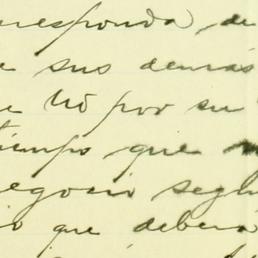 responda, de
e sus demás
e Uó por su
tiempo que
negocio segú
io que deberá